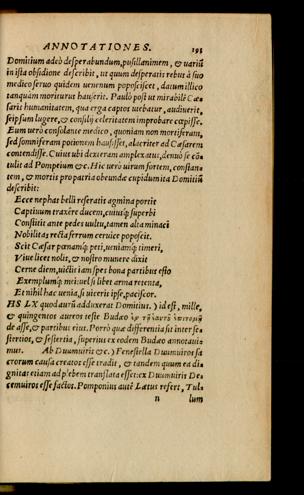 ANNOTATIONES. 191
Domitium adeò desperabundum, pusillanimem, & uariũ
in ista obsidione describit, ut quum desperatis rebus à suo
medico seruo quidem uenenum poposcisset, datum illico
tanquàm moriturus hauserit. Paulo pòst ut mirabilẽ Cæ
saris humanitatem, qua erga captos utebatur, audiuerit,
seipsum lugere, & consilij celeritatem improbare cœpisse.
Eum uerò consolante medico, quoniam non mortiferam,
sed somniferam potionem hausisset, alacriter ad Cæsarem
contendisse. Cuius ubi dexteram amplexatus, denuò se cõ
tulit ad Pompeium &c. Hic uerò uirum fortem, constan
tem, & mortis pro patria obeundæ cupidum ita Domitiũ
describit:
Ecce nephas belli reseratis agmina portis
Captiuum traxêre ducem, ciuisq; superbi
Constitit ante pedes uultu, tamen alta minaci
Nobilitas recta ferrum ceruice poposcit.
Scit Cæsar pœnamq; peti, ueniamq; timeri,
Viue licet nolis, & nostro munere dixit
Cerne diem, uictis iam spes bona partibus esto
Exemplumq; mei: uel si libet arma retenta,
Et nihil hac uenia, si uiceris ipse, paciscor.
HS LX quod aurũ adduxerat Domitius. ) id est, mille,
& quingentos aureos teste Budæo
de asse, & partibus eius. Porrò quæ differentia sit inter se
stertios, & sestertia, superius ex eodem Budæo annotaui
mus. Ab Duumuiris &c. ) Fenestella Duumuiros sa
crorum causa creatos esse tradit, & tandem quum ea di
gnitas etiam ad plebem translata esset: ex Duumuiris De
cemuiros esse factos. Pomponius autẽ Lætus refert, Tul
n lum